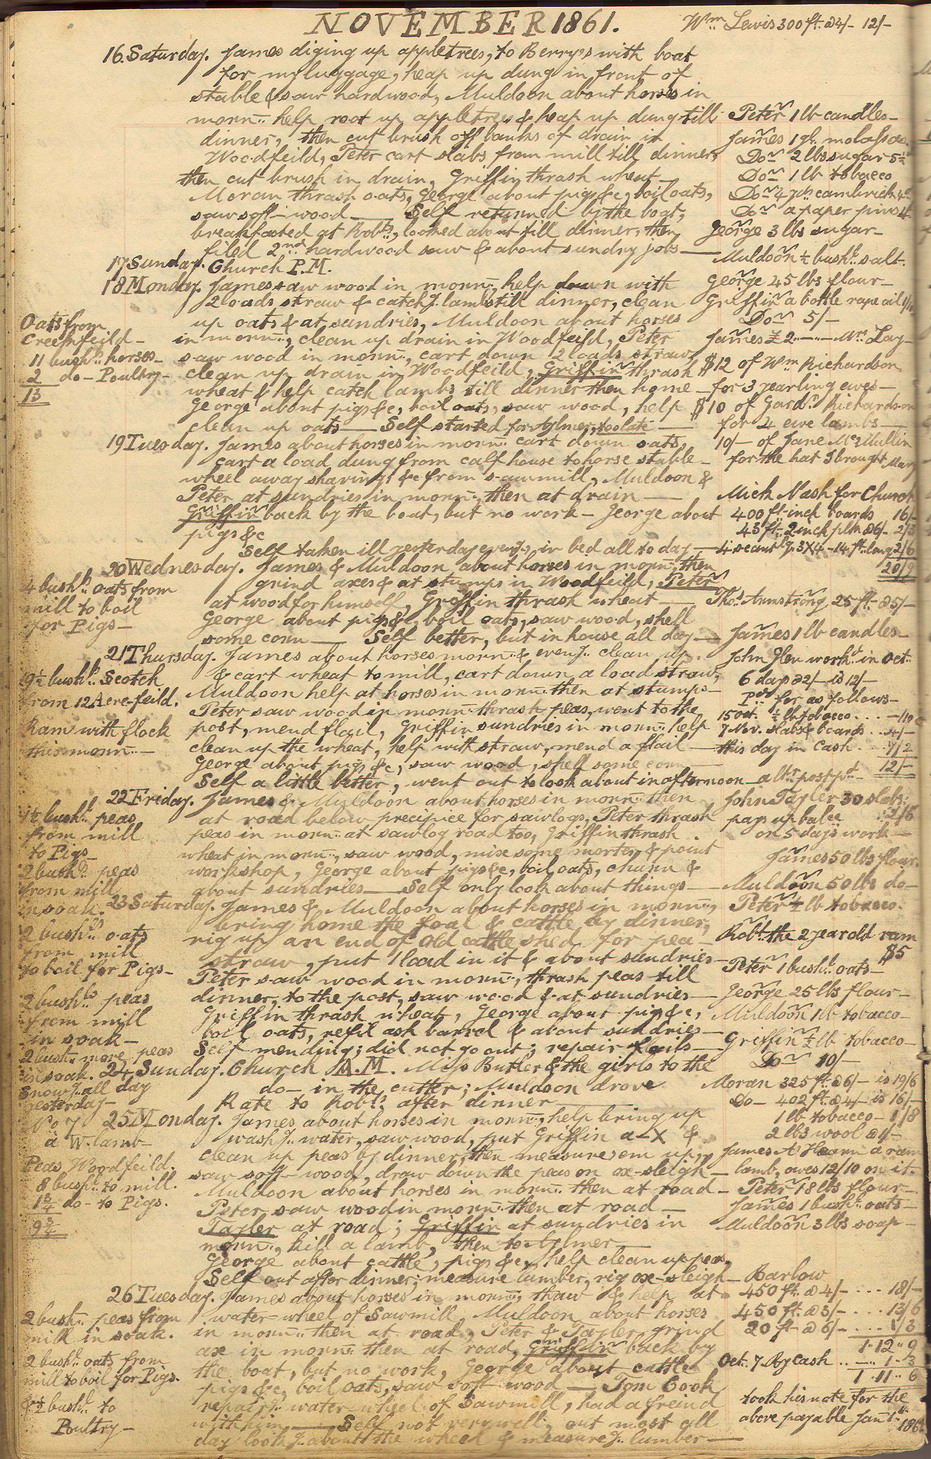 NOVEMBER 1861.
Wm Lewis 300 ft. @ 4/- 12/-
16. Saturday. James diging up appletrees, to Berry's with boat
for my luggage, heap up dung in front of
stable & saw hardwood, Muldoon about horses in
morn:. help root up appletrees & heap up dung till
dinner, then cut brush off banks of drain in
Woodfeild, Peter cart slabs from mill till dinner
then cut brush in drain, Griffin thrash wheat
Moran thrash oats, George about pigs &c, boil oats,
saw soft-wood — Self returned by the boat,
breakfasted at Robts, looked about till dinner, then
filed 2nd hardwood saw & about sundry jobs—
17 Sunday. Church P.M.
18 Monday. James saw wood in morn:, help down with
2 loads straw & catchg. lambs till dinner, clean
up oats & at sundries, Muldoon about horses
in morn:, clean up drain in Woodfeild, Peter
saw wood in morn:, cart down 2 loads straw,
clean up drain in Woodfeild, Griffin thrash
wheat & help catch lambs till dinner then home
George about pigs &c, boil oats, saw wood, help
clean up oats — Self started for Aylmer, too late
19 Tuesday. James about horses in morn: cart down oats,
cart a load dung from calf house to horse stable—
wheel away shavings &c from sawmill, Muldoon &
Peter at sundries in morn:, then at drain —
Griffin back by the boat, but no work — George about
pigs &c
Self taken ill yesterday eveng., in bed all to day —
20 Wednesday. James & Muldoon about horses in morn:, then
grind axes & at stumps in Woodfeild, Peter
at wood for himself, Griffin thrash wheat —
George about pigs &c, boil oats, saw wood, shell
some corn — Self better, but in house all day —
21 Thursday. James about horses morn: & eveng. clean up
& cart wheat to mill, cart down a load straw,
Muldoon help at horses in morn: then at stumps—
Peter saw wood in morn: thrash peas, went to the
post, mend flail, Griffin sundries in morn:, help
clean up the wheat, help with straw, mend a flail —
George about pigs &c, saw wood, shell some corn —
Self a little better, went out to look about in afternoon—
22 Friday. James & Muldoon about horses in morn: then
at road below precipice for sawlogs, Peter thrash
peas in morn: at sawlog road too, Griffin thrash
wheat in morn:, saw wood, mix some mortar & point
workshop, George about pigs &c, boil oats, churn &
about sundries — Self only look about things —
23 Saturday. James & Muldoon about horses in morn:,
bring home the foal & cattle by dinner,
rig up an end of old cattle shed for pea-
straw, put 1 load in it & about sundries—
Peter saw wood in morn:, thrash peas till
dinner, to the post, saw wood & at sundries —
Griffin thrash wheat, George about pigs &c,
boil oats, refix ash barrel & about sundries—
Self mending; did not go out; repair flails—
24 Sunday. Church A.M. Miss Butler & the girls to the
do— in the cutter; Muldoon drove
Kate to Robts. after dinner —
25 Monday. James about horses in morn:, help bring up
washg. water, saw wood, put Griffin a-X &
clean up peas by dinner, then measure em up,
saw soft-wood, draw down the peas on ox-sleigh—
Muldoon about horses in morn:. then at road—
Peter saw wood in morn: then at road —
Tayler at road; Griffin at sundries in
morn:, kill a lamb, then to Aylmer —
George about cattle, pigs &c, help clean up peas,
Self out after dinner; measure lumber, rig ox-sleigh—
26 Tuesday. James about horses in morn:, thaw & help at
water-wheel of Sawmill, Muldoon about horses
in morn:. then at road, Peter & Tayler grind
axe in morn: then at road, Griffin back by
the boat, but no work, George about cattle
pigs &c, boil oats, saw soft wood — Tom Cook
repairg. water-wheel of Sawmill, had a freind
with him — Self not very well; out most all
day lookg. about the wheel & measureg. lumber —
Oats from
Creekfeild—
11 bushls. horses—
2 do— Poultry—
13
4 bushls. oats from
mill to boil
for Pigs—
9½ bushls. Scotch
from 12 Acre-feild.
Ram with flock
this morn:—
1½ bushls. peas
from mill
to Pigs—
2 bushls. peas
from mill
in soak.
2 bushls. oats
from mill
to boil for Pigs—
2 bushls. peas
from mill
in soak—
2 bush— more peas
in soak.
Snowg. all day
yesterday—
No 7
a W. lamb—
Peas, Woodfeild.
8 bushls. to mill.
1¾ do— to Pigs.
9¾
2 bush. peas from
mill in soak.
2 bushls. oats from
mill to boil for Pigs.
& ½ bushl. to
Poultry—
Peter 1 lb candles—
James 1 gl. molasses
Do 2 lbs sugar 5½
Do 1 lb tobacco
Do 4 yds cambrick
Do a paper pins
George 3 lbs sugar—
Muldoon ½ bushl. salt.
George 45 lbs flour—
Griffin a bottle rape oil
Do 5/-
James £ 2 — — Mr. Lay
$12 of Wm Richardson
for 3 yearling ewes—
$10 of Gardr Richardson
for 4 ewe lambs—
10/- of Jane McMullin
for the hat I brought Mary
Mich Nash for Church
400 ft. inch boards 16/-
45 ft. 2 inch plm @6/- 2/3
4 scantg. 3X4—14 ft. long 2/6
20/9
Thos. Armstrong 25 ft. @5/-
James 1 lb candles—
John Glen workd. in Oct:
6 days @2/- is 12/-
Pd. for as follows—
15 Oct. ½ lb tobacco
7 Nov. slabs & boards .. 4/-
this day in Cash . 7/2
12/-
John Tayler 30 slabs
pays up balce 2/6
on 5 days work—
James 50 lbs flour.
Muldoon 50 lbs do—
Peter ½ lb tobacco.
Robt. the 2 year old ram
$5
Peter 1 bushl. oats—
George 25 lbs flour—
Muldoon 1 lb tobacco—
Griffin ½ lb tobacco—
Do 10/-
Moran 325 ft. @6/- is 19/6
Do— 402 ft. @4/- is 16/-
1 lb tobacco— 1/8
2 lbs wool @1/—
James A Hearn a ram
lamb, owes 12/10 on it.
Peter 18 lbs flour—
James 1 bushl. oats—
Muldoon 3 lbs soap—
Barlow
450 ft. @4/- .... 18/-
450 ft. @3/- .... 13/6
20 ft— @6/- .. 1/3
1 . 12 . 9
Oct. 7. By Cash .. — . 1 . 3
1 . 11 . 6
took his note for the
above payable Jany 1st
1862